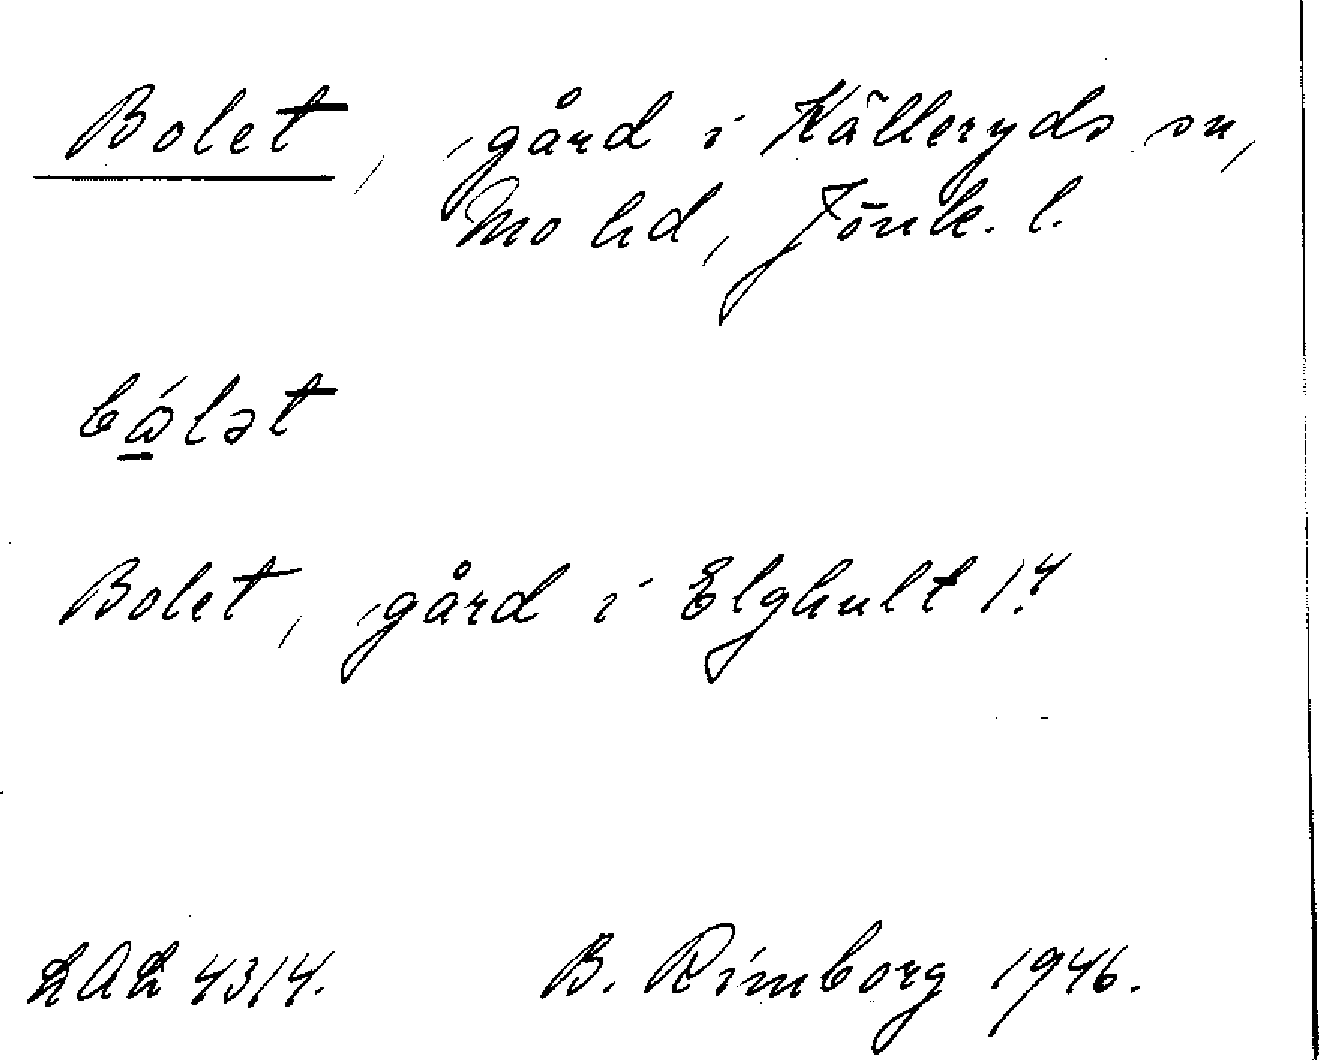 Bolet, gård i Källeryds sn,
Mo hd, Jönk. l.
bώlət
Bolet, gård i Elghult 1:4
LAL 4314. B. Rimborg 1946.